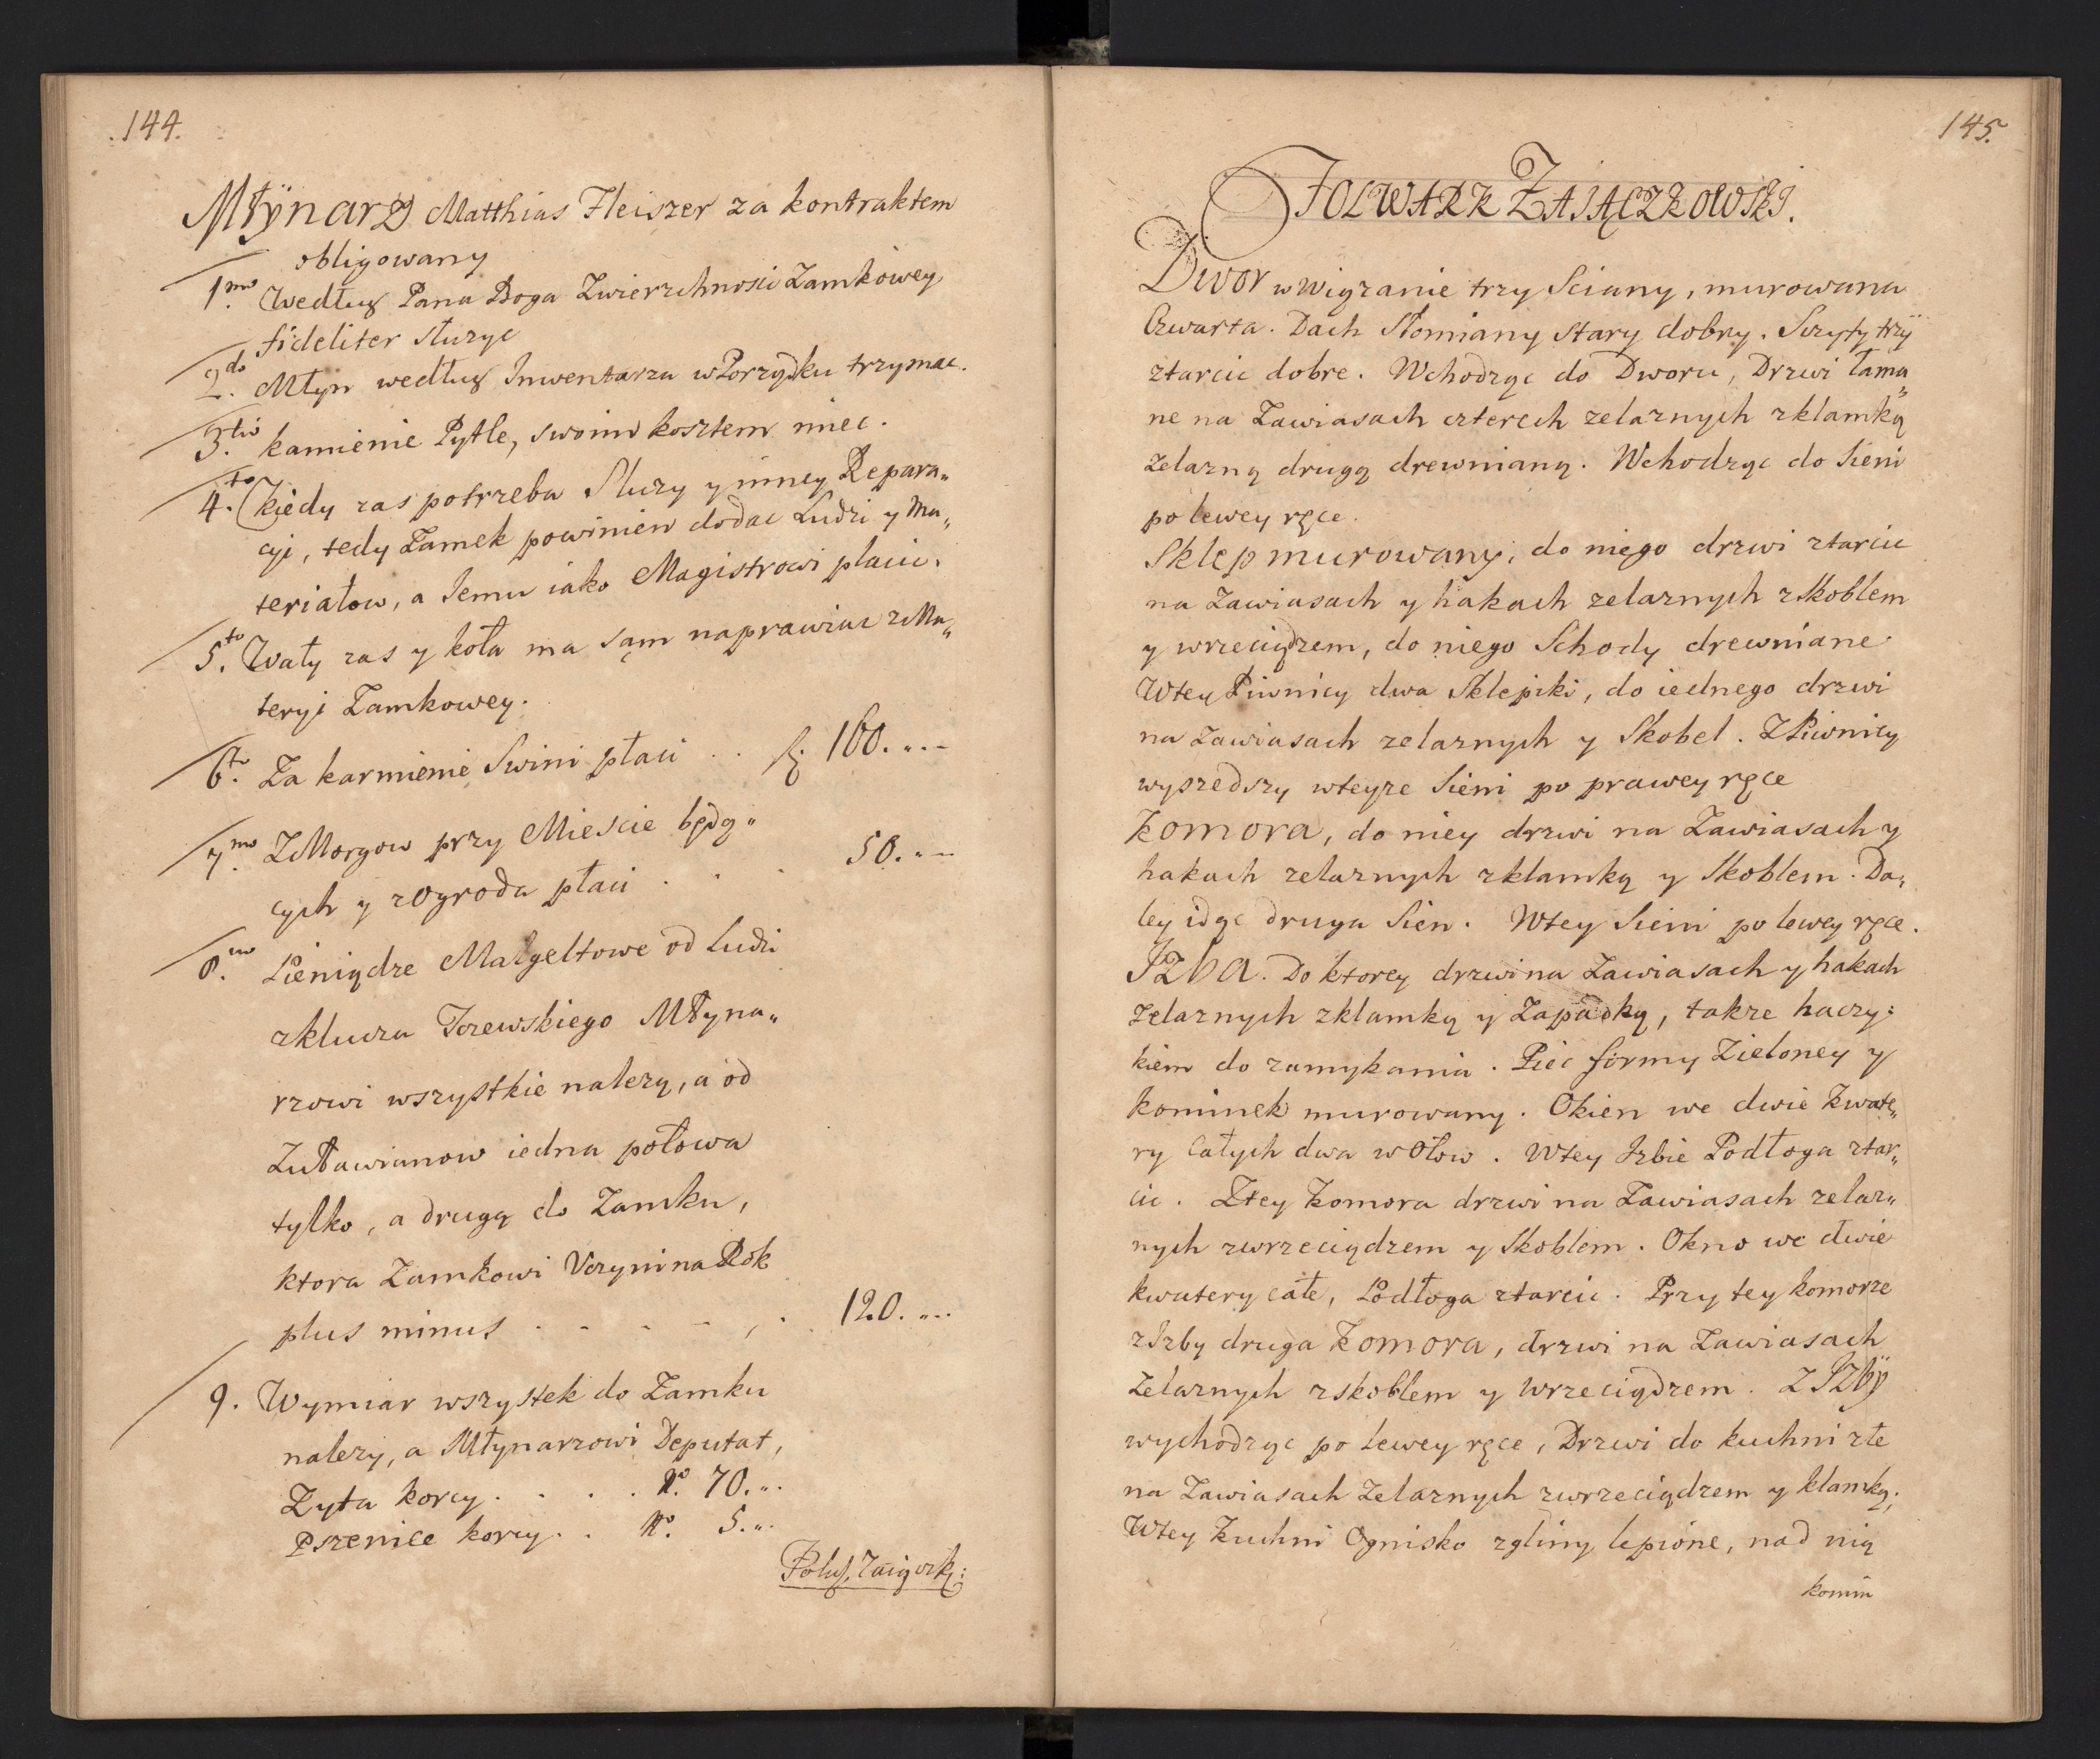 144.
Młÿnarz Matthias Fleiszer za kontraktem
obligowany
1mo. Według Pana Boga Zwierzchnosci Zamkowey
fideliter służyc
2do. Młyn według Inwentarza w Porządku trzymac.
3tio. kamienie Pytle, swoim kosztem miec.
4to. kiedy zas potrzeba Sluzy y inney Repara„
cyi, tedy Zamek powinien dodac Ludzi y Ma„
teriałow, a Jemu iako Magistrowi placic.
5to. Wały zas y koła ma sąm naprawiac z Ma„
teryi Zamkowey.
6to. Za karmienie Swini płaci . . fl: 160. „.–
7mo. Z Morgow przy Miescie będą„
cych y z Ogroda płaci . . . 50. „.–
8vo. Pieniądze Malgeltowe od Ludzi
z klucza Tczewskiego Młyna„
rzowi wszystkie nalezą, a od
Zuławianow iedna połowa
tylko, a drugą do Zamku,
ktora Zamkowi Vczyni na Rok
plus minus . . . . . 120. „..
9. Wymiar wszystek do Zamku
nalezy, a Młynarzowi Deputat,
Zyta korcy . . . . No. 70. „.
Pszenice korcy . . No. 5. „.
145.
FOLWARK ZAIĄCZKOWSKI.
Dwor w Wigzanie trzy Sciany, murowana
Czwarta. Dach Słomiany stary dobry. Szczyty trzÿ
ztarcic dobre. Wchodząc do Dworu, Drzwi łama„
ne na Zawiasach czterech zelaznych z klamką
zelazną drugą drewnianą. Wchodząc do Sieni
po lewey ręce.
Sklep murowany, do niego drzwi ztarcic
na Zawiasach y hakach zelaznych z Skoblem
y wrzeciądzem, do niego Schody drewniane
W tey Piwnicy dwa Sklepiki, do iednego drzwi
na Zawiasach zelaznych y Skobel. Z Piwnicy
wyszedszy w teyze Sieni po prawey ręce
Komora, do niey drzwi na Zawiasach y
hakach zelaznych z klamką y Skoblem. Da„
ley idąc druga Sien. W tey Sieni po lewey ręce.
IZba. Do ktorey drzwi na Zawiasach y hakach
zelaznych z klamką y Zapadką, takze haczy:
kiem do zamykania. Piec formy Zieloney y
kominek murowany. Okien we dwie kwate„
ry całych dwa w Ołow. W tey Izbie Podłoga ztar„
cic. Z tey Komora drzwi na Zawiasach zelaz„
nych z wrzeciądzem y Skoblem. Okno we dwie
kwatery całe, Podłoga ztarcic. Przy tey komorze
z Izby druga Komora, drzwi na Zawiasach
zelaznych z skoblem y wrzeciądzem. Z IZbÿ
wychodząc po lewey ręce, Drzwi do kuchni złe
na Zawiasach zelaznych z wrzeciądzem y klamką;
W tey kuchni Ognisko z gliny lepione, nad nią
komin